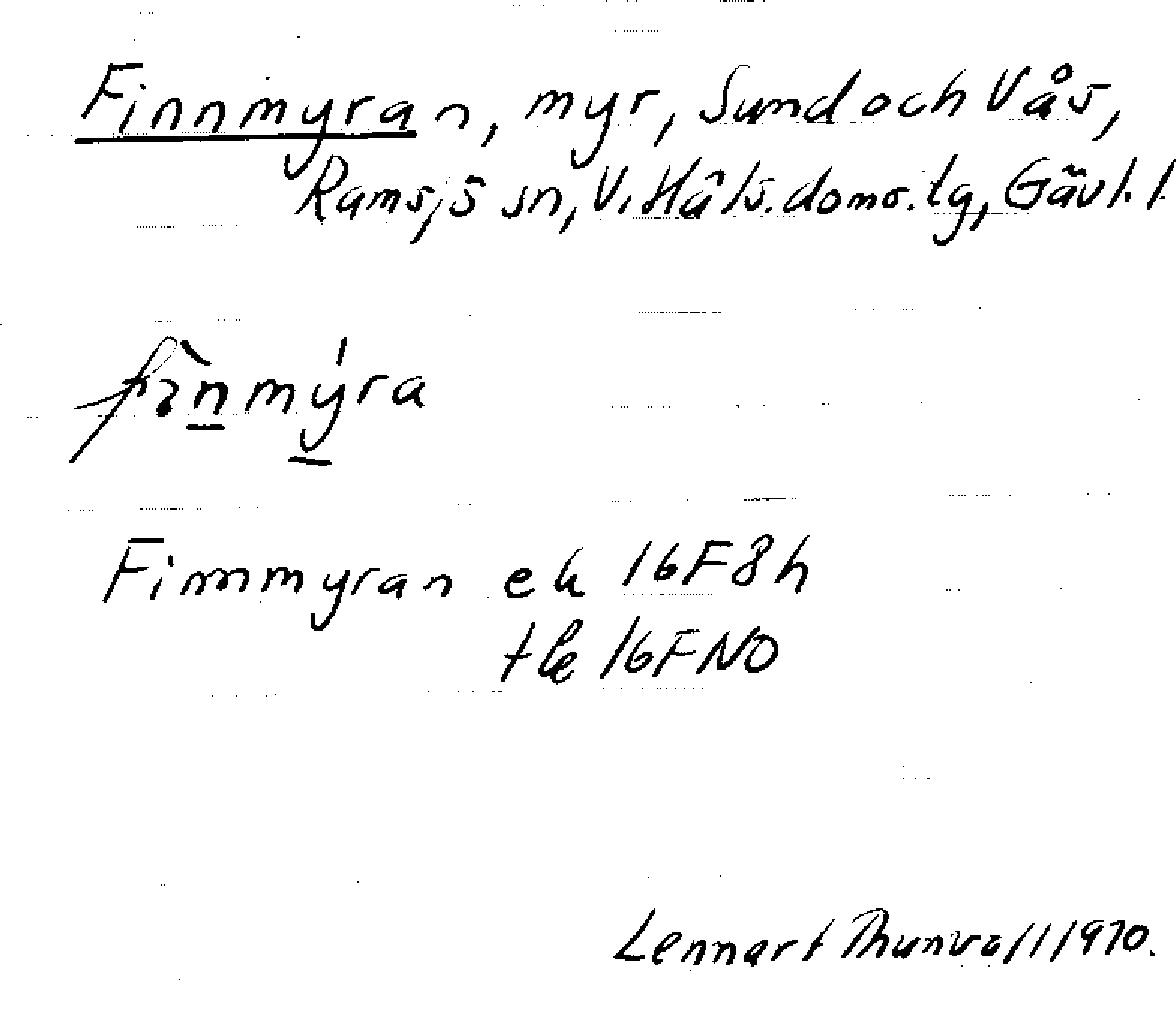 Finnmyran, myr, Sund och Vås,
Ramsjö sn, V. Häls. doms. lg, Gävl. l
fìnmýra
Finnmyran ek 16F8h
tk 16FNO
Lennart Thunvall 1970.